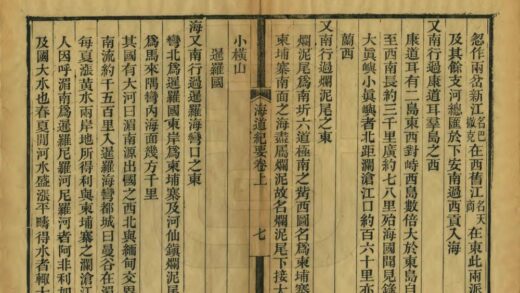 忽作兩岔新江名巴徼克在西舊江名天在東此兩派
及其餘支河總匯於下安南過西貢入海
又南行過康道耳羣島之西
康道耳有二島東西對峙西島數倍大於東島自
至西南長約三千里廣約七八里殆海國聞見錄
大眞嶼小眞嶼者北距瀾滄江口約百六十里亦
蘭西
又南行過爛泥尾之東
爛泥尾為南圻六道極南之西圖名為柬埔寨
柬埔寨南面之海盡屬爛泥故名爛泥尾下接大
小橫山
海道紀要卷上
七
暹羅國
海又南行過暹羅海灣口之東
灣北為暹羅國東岸為柬埔寨及河仙鎮爛泥尾
為馬來隅灣內海面幾方千里
其國有大河曰湄南源出國之西北與緬甸交界
南流約千五百里入暹羅海灣都城曰曼谷在湄
每夏漲黃水兩岸地所得利與柬埔寨之瀾滄江
人因呼湄南為暹羅尼羅河尼羅河者阿非利加
及國大水也春夏間河水盛漲平疇得水者極大